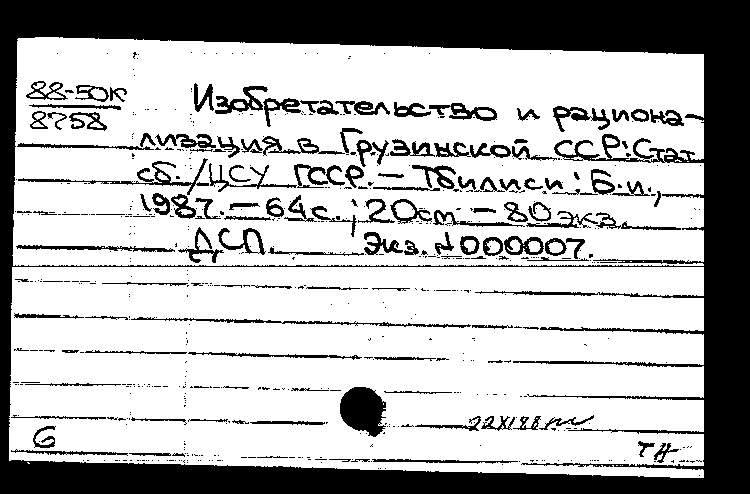 88-50к
8758
Изобретательство и рациона-
лизация в Грузинской ССР: Стат.
сб. / ЦСУ ГССР. — Тбилиси : Б.и.,
1987. — 64 с. ; 20 см — 80 экз.
ДСП. Экз. N 000007.
22XI88
6
ТН.